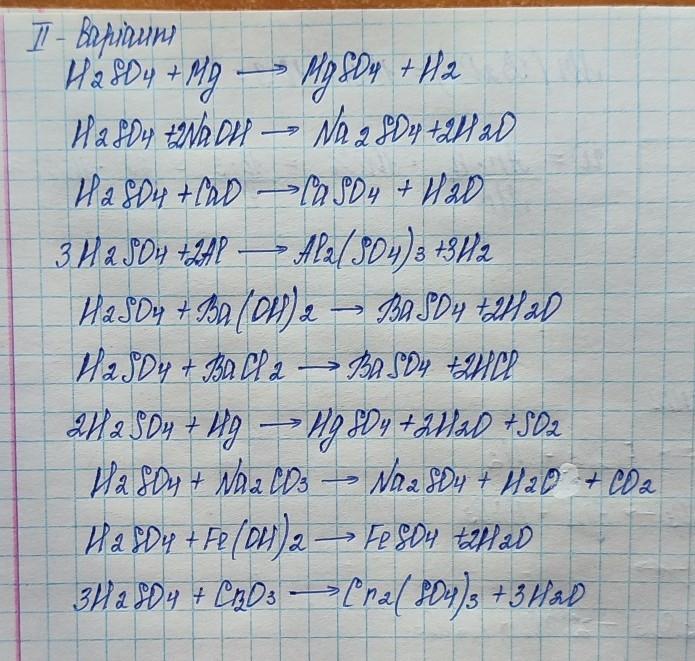 II - Варіант
H2SO4 + Mg → MgSO4 + H2
H2SO4 + 2NaOH → Na2SO4 + 2H2O
H2SO4 + CaO → CaSO4 + H2O
3H2SO4 + 2Al → Al2(SO4)3 + 3H2
H2SO4 + Ba(OH)2 → BaSO4 + 2H2O
H2SO4 + BaCl2 → BaSO4 + 2HCl
2H2SO4 + Hg → HgSO4 + 2H2O + SO2
H2SO4 + Na2CO3 → Na2SO4 + H2O + CO2
H2SO4 + Fe(OH)2 → FeSO4 + 2H2O
3H2SO4 + Cr2O3 → Cr2(SO4)3 + 3H2O